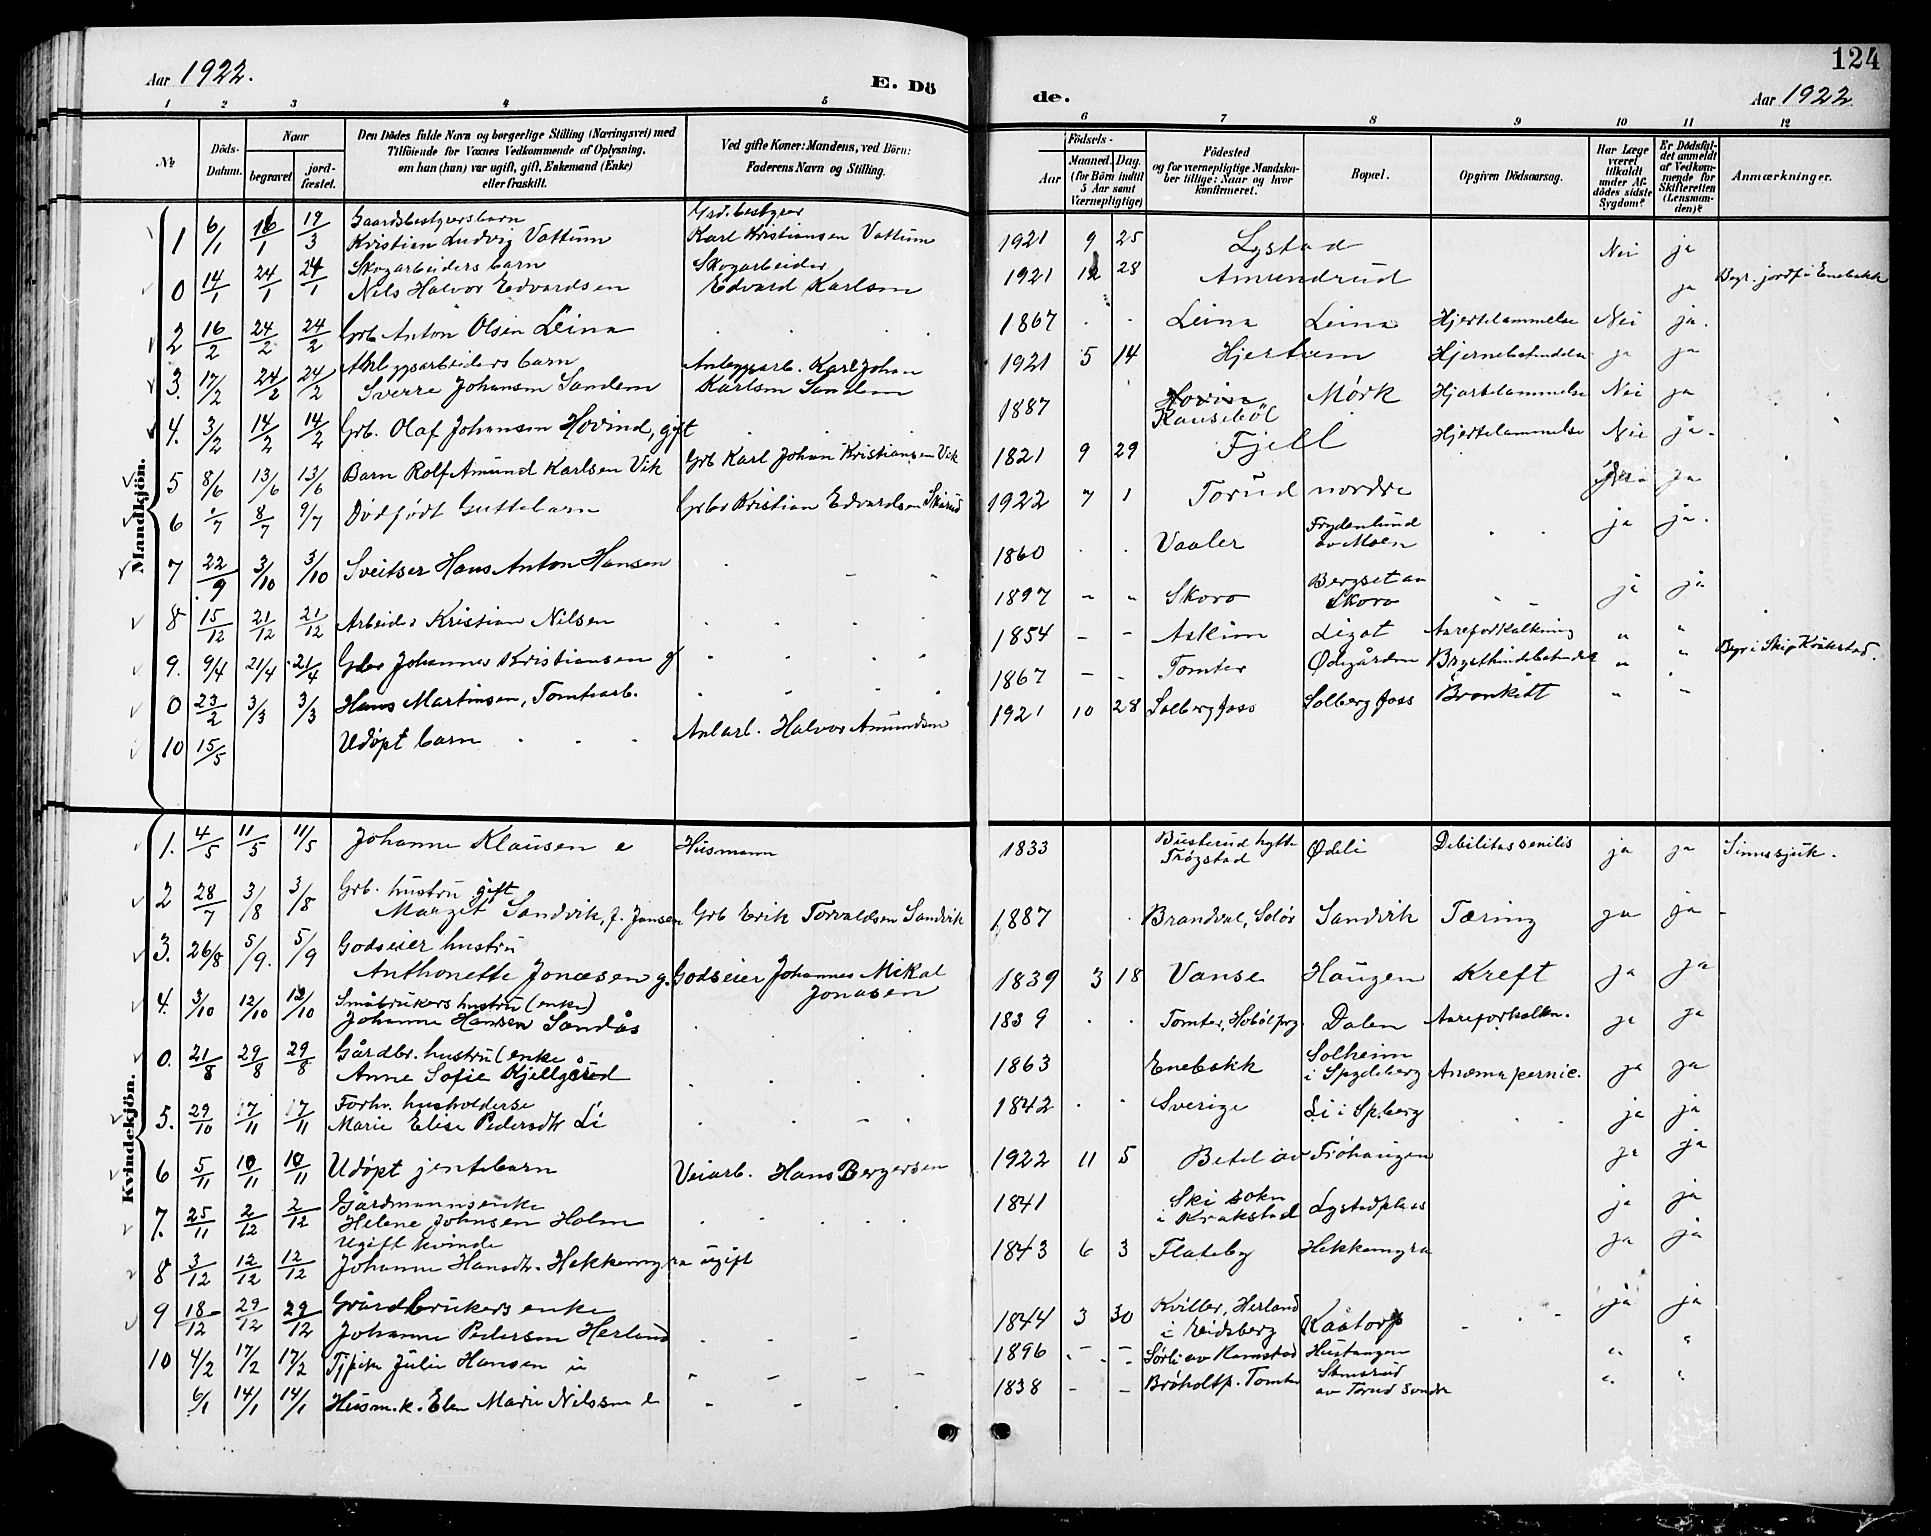 Aar 1922.
E. Dö
de.
124
Aar 1922
1 2 3 4 5 6 7 8 9 10 11 12
No
Döds-Datum.
Naar
begravet
jord-fæstet.
Den Dödes fulde Navn og borgerlige Stilling (Næringsvei) med
Tilföiende for Voxnes Vedkommende af Oplysning,
om han (hun) var ugift, gift, Enkemand (Enke)
eller fraskilt.
Ved gifte Koner: Mandens, ved Börn:
Faderens Navn og Stilling.
Födsels-
Aar
Maaned. Dag.
(for Börn indtil
5 Aar samt
Værnepligtige)
Födested
og for værnepligtige Mandska-
ber tillige: Naar og hvor
konfirmeret.
Bopæl.
Opgiven Dödsaarsag.
Har Læge
været
tilkaldt
under Af-
dödes sidste
Sygdom?
Er Dödsfal-
det anmeldt
af Vedkom-
mende for
Skifteretten
(Lensman-
den)?
Anmærkninger.
Mandkjön.
1 6/1 16/1 19/3 Gaardsbestyrersbarn Grd.bestyrer
Kristian Ludvig Vattum Karl Kristiansen Vattum 1921 9 25 Lystad Nei ja
0 14/1 24/1 24/1 Skogarbeiders barn Skogarbeider
Nils Halvor Edvardsen Edvard Karlsen 1921 12 28 Amundrud ja Begr. jordf. i Enebakk
2 16/2 24/2 24/2 Grb Anton Olsen Leina 1867 Leina Leina Hjertelammelse Nei ja.
3. 17/2 24/2 24/2 Anlegsarbeiders barn Anleggsarb. Karl Johan
Sverre Johansen Sandem Karlsen Sandem 1921 5 14 Hjertum Hjernebetendelse ja ja
4. 3/2 14/2 14/2 Grb. Olaf Johansen Hovind, gift 1887 Hovin Kausebøl Mørk Hjertelammelse Nei ja
5 8/6 13/6 13/6 Barn Rolf Amund Karlsen Vik Grb Karl Johan Kristiansen Vik 1821 9 29 Fjell Hjertelammelse Nei ja.
6 1/7 8/7 9/7 Dødfødt Guttebarn Grbr Kristian Edvardsen Skirud 1922 7 1 Torud nordre ja
7 22/9 3/10 3/10 Sveitser Hans Anton Hansen 1860 Vaaler Frydenlund av Moen ja ja.
8 15/12 21/12 21/12 Arbeider Kristian Nilsen 1897 Skoro Bergset av Skoro ja ja
9. 9/4 21/4 21/4 Gbr Johannes Kristiansen g 1854 Askim Ligat Aareforkalkning " "
0 23/2 3/3 3/3 Hans Martinsen, Tomtearb. 1867 Tomter Ødegården Brysthindebetndlse " " Begr i Skip Kråkstad.
10 15/5 Udøpt barn Anlarb. Halvor Amundsen 1921 10 28 Solbergfoss Solbergfoss Bronkitt " "
Kvindekjön.
1. 4/5 11/5 11/5 Johanne Klausen e Husmann 1833 Busterud hytte Trøgstad Ødeli Debilitas senilis ja ja Sinnssjuk.
2 28/7 3/8 3/8 Grb. hustru gift
Marget Sandvik, f. Jansen Grb Erik Torvaldsen Sandvik 1887 Brandval, Solør Sandvik Tæring ja ja
3. 26/8 5/9. 5/9 Godseier hustru
Anthonette Jonasen g. Godseier Johannes Mikal Jonasen 1839 3 18 Vanse Haugen Kreft ja ja
4. 3/10 12/10 12/10 Småbrukers hustru (enke)
Johanne Hansen Sandås 1839 Tomter, Hobøl prg. Dalen Aareforkalkn. ja ja
0. 21/8 29/8 29/8 Gårdbr. hustru (enke
Anne Sofie Kjellgård 1863 Enebakk Solheim i Spydeberg Anæma pernic. ja ja
5. 29/10 17/11 17/11 Forhv. husholderse
Marie Elise Pedersdtr Li 1842 Sverige Li i Sp.berg ja ja
6 5/11 10/11 10/11 Udøpt jentebarn Veiarb. Hans Bergersen 1922 11 5 Betel av Frøhaugen ja ja
7. 25/11 2/12 2/12 Gårdmannsenke
Helene Johnsen Holm 1841 Ski sokn i Kråkstad Lystadplass ja ja
8 3/12 12/12 12/12 Ugift kvinde
Johanne Hansdtr. Hekkemyra ugift 1843 6 3 Flateby Hekkemyra ja ja
9 18/12 29/12 29/12 Gårdbrukers enke
Johanne Pedersen Herland 1844 3 30 Kviller, Herland i Eidsberg Kaatorp ja ja
10 4/2 17/2 17/2 Tjpike Julie Hansen u 1896 Sørli av Kamstad Hustangen " "
6/1 14/1 14/1 Husm.k. Elen Marie Nilssen e 1838 Brøholtp. Tomter Stensrud av Torud søndre " "